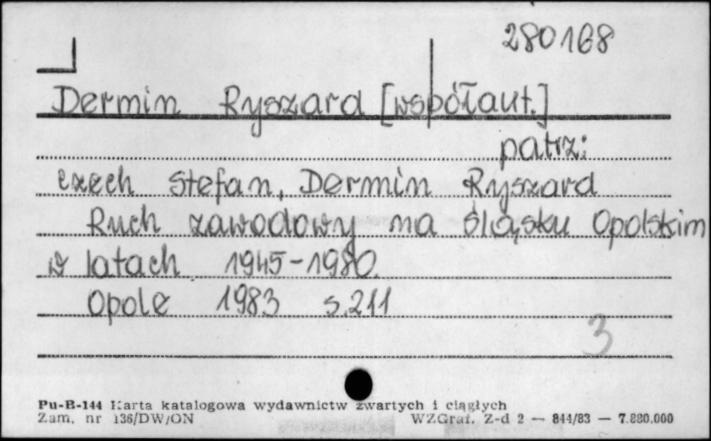 280168
Dermin Ryszard [współaut.]
patrz:
Czech Stefan, Dermin Ryszard
Ruch zawodowy na Śląsku Opolskim
w latach 1945-1980.
Opole 1983 s.211
3
Pu-B-144 Karta katalogowa wydawnictw zwartych i ciągłych
Zam. nr 136/DW/ON WZGraf. Z-d 2 — 844/83 — 7.880.000